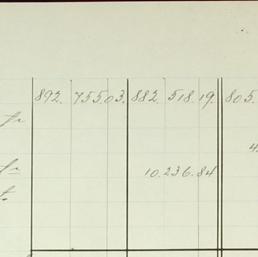 892. 755.03. 882. 518. 19. 805.
fr
4
10.236.84
t.